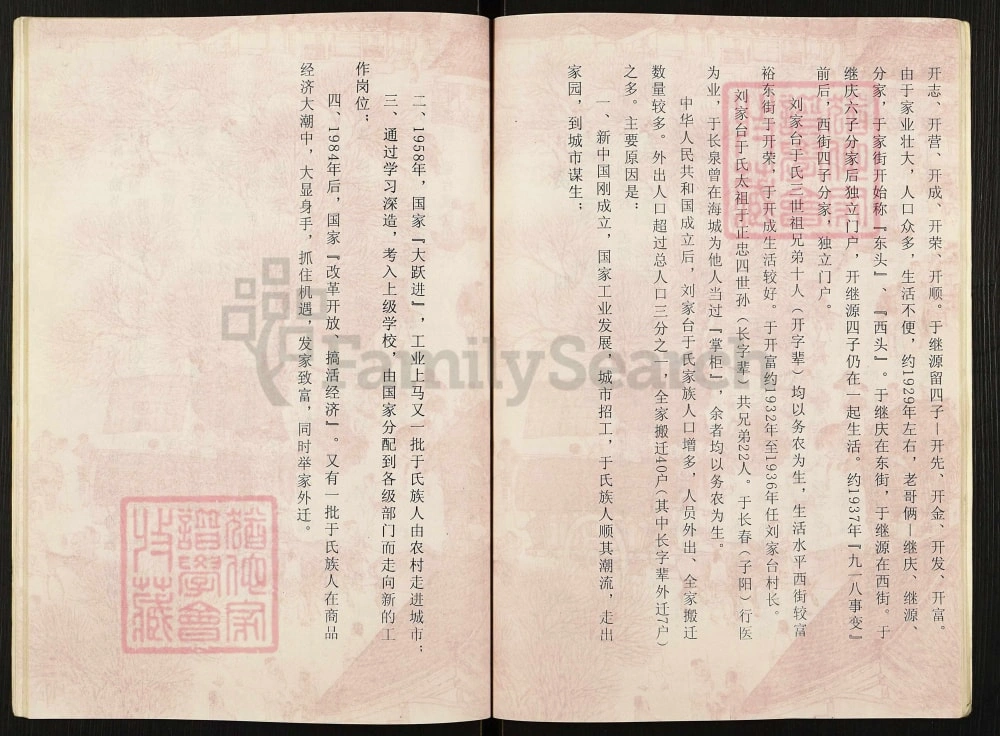 开志、开营、开成、开荣、开顺。于继源留四子—开先、开金、开发、开富。
由于家业壮大，人口众多，生活不便，约1929年左右，老哥俩—继庆、继源、
分家，于家街开始称『东头』、『西头』。于继庆在东街，于继源在西街。于
继庆六子分家后独立门户，开继源四子仍在一起生活。约1937年『九一八事变』
前后，西街四子分家，独立门户。
刘家台于氏三世祖兄弟十人（开字辈）均以务农为生，生活水平西街较富
裕东街于开荣，于开成生活较好。于开富约1932年至1936年任刘家台村长。
刘家台于氏太祖于正忠四世孙（长字辈）共兄弟22人。于长春（子阳）行医
为业，于长泉曾在海城为他人当过『掌柜』，余者均以务农为生。
中华人民共和国成立后，刘家台于氏家族人口增多，人员外出、全家搬迁
数量较多。外出人口超过总人口三分之一，全家搬迁40户(其中长字辈外迁7户)
之多。主要原因是：
一、新中国刚成立，国家工业发展，城市招工，于氏族人顺其潮流，走出
家园，到城市谋生；
二、1958年，国家『大跃进』，工业上马又一批于氏族人由农村走进城市；
三、通过学习深造，考入上级学校，由国家分配到各级部门而走向新的工
作岗位；
四、1984年后，国家『改革开放、搞活经济』。又有一批于氏族人在商品
经济大潮中，大显身手，抓住机遇，发家致富，同时举家外迁。
FamilySearch
譜學會
收藏